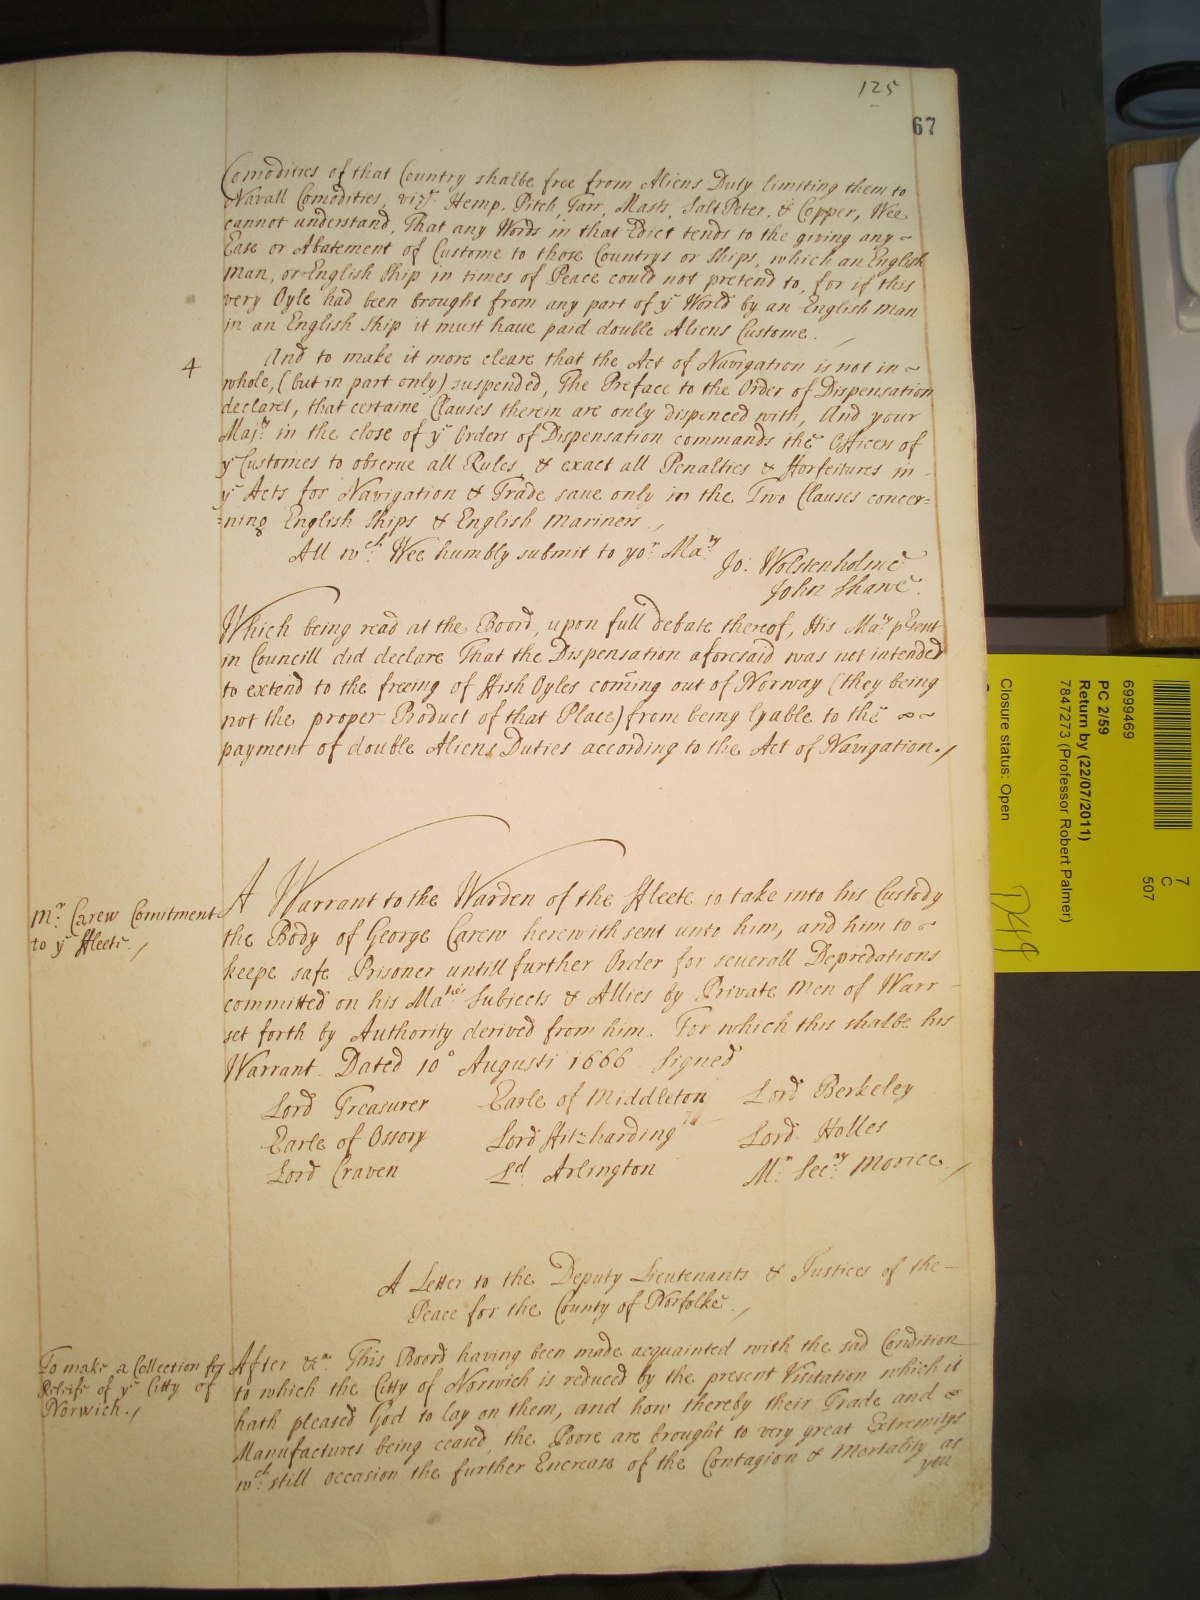 125
67
Comodities of that Country shalbe free from Aliens Duty limiting them to
Navall Comodities, vizt. Hemp, Pitch, Tarr, Masts, Salt Peter, & Copper, Wee
cannot understand, That any Words in that Edict tends to the giving any ~
Ease or Abatement of Custome to those Countrys or Ships, which an English
man, or English Ship in times of Peace could not pretend to, for if this
very Oyle had been brought from any part of ye World by an English man
in an English Ship it must haue paid double Aliens Custome.
4
And to make it more cleare that the Act of Navigation is not in ~
whole, (but in part only) suspended, The Preface to the Order of Dispensation
declares, that certaine Clauses therein are only dispenced with, And your
Majty. in the close of ye Orders of Dispensation commands the Officers of
ye Customes to observe all Rules, & exact all Penalties & fforfeitures in -
ye Acts for Navigation & Trade saue only in the Two Clauses concer=
=ning English Ships & English Mariners.,
All wch. Wee humbly submit to yor. Maty
Jo: Wolstenholme
John Shawe.
Which being read at the Boord, upon full debate thereof, His Maty. pesent
in Councill did declare That the Dispensation aforesaid was not intended
to extend to the freeing of ffish Oyles coming out of Norway (they being
not the proper Product of that Place) from being lyable to the ~ ~
payment of double Aliens Duties according to the Act of Navigation.,
Mr. Carew Comitment
to ye ffleete.,
A Warrant to the Warden of the ffleete to take into his Custody
the Body of George Carew herewith sent unto him, and him to ~
keepe safe Prisoner untill further Order for severall Depredations
committed on his Maties. Subjects & Allies by Private Men of Warr -
set forth by Authority derived from him. For which this shalbe his
Warrant. Dated 10o Augusti 1666 Signed
Lord Treasurer Earle of Middleton Lord Berkeley
Earle of Ossory Lord ffitzharding Lord Holles
Lord Craven Ld. Arlington Mr. Secry. Morice.,
A Letter to the Deputy Lieutenants & Justices of the -
Peace for the County of Norfolke.,
To make a Collection for
Releife of ye Citty of
Norwich.,
After &ca. This Boord having been made acquainted with the sad Condition
to which the Citty of Norwich is reduced by the present Visitation which it
hath pleased God to lay on them, and how thereby their Trade and ~
Manufactures being ceased, the Poore are brought to very great Extremitys
wch. still occasion the further Encrease of the Contagion & Mortality as
you
6999469
PC 2/59
Return by (22/07/2011)
7847273 (Professor Robert Palmer)
Closure status: Open
7
C
507